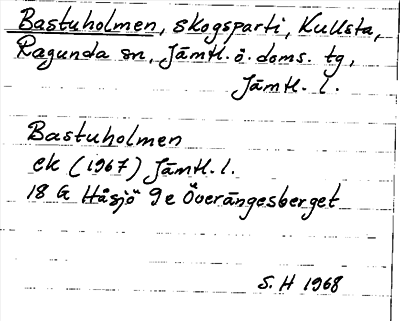 Bastuholmen, skogsparti, Kullsta,
Ragunda sn, Jämtl. ö. doms. tg,
Jämtl. l.
Bastuholmen
ek (1967) Jämtl. l.
18 G Håsjö 9e Överängesberget
S. H 1968